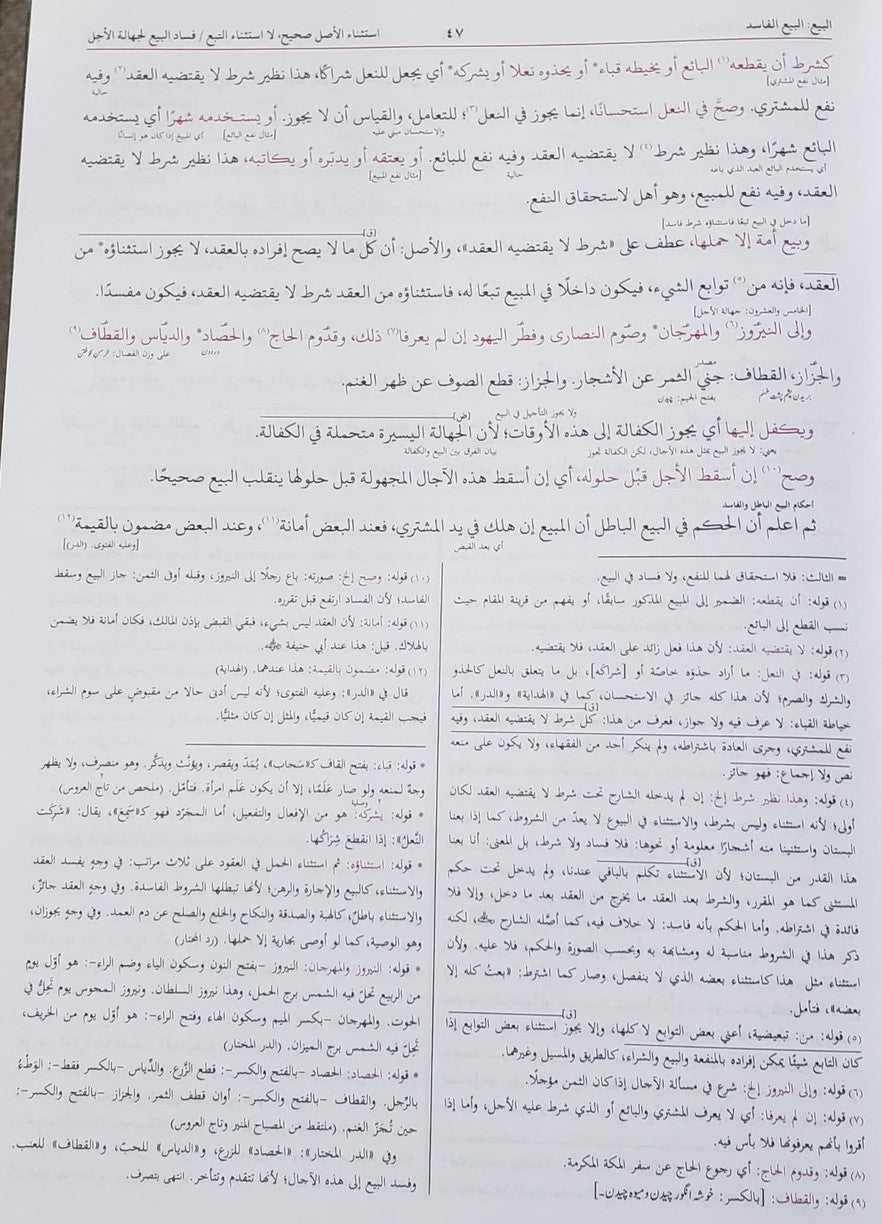 البيع: البيع الفاسد
٤٧
استثناء الأصل صحيح، لا استثناء التبع / فساد البيع لجهالة الأجل
كشرط أن يقطعه(١) البائع أو يخيطه قباء* أو يحذوه نعلا أو يشركه* أي يجعل للنعل شراكًا، هذا نظير شرط لا يقتضيه العقد(٢) وفيه
[مثال نفع المشتري] حالية
نفع للمشتري. وصحَّ في النعل استحسانًا، إنما يجوز في النعل(٣)؛ للتعامل، والقياس أن لا يجوز. أو يستخدمه شهرًا أي يستخدمه
والاستحسان مبني عليه [مثال نفع البائع] أي المبيع إذا كان هو إنسانًا
البائع شهرًا، وهذا نظير شرط(٤) لا يقتضيه العقد وفيه نفع للبائع. أو يعتقه أو يدبّره أو يكاتبه، هذا نظير شرط لا يقتضيه
أي يستخدم البائع العبد الذي باعه حالية [مثال نفع المبيع]
العقد، وفيه نفع للمبيع، وهو أهل لاستحقاق النفع.
[ما دخل في البيع تبعًا فاستثناؤه شرط فاسد]
وبيع أمة إلا حملها، عطف على «شرط لا يقتضيه العقد»، والأصل: أن كل ما لا يصح إفراده بالعقد، لا يجوز استثناؤه* من
[ق]
العقد، فإنه من(٥) توابع الشيء، فيكون داخلًا في المبيع تبعًا له، فاستثناؤه من العقد شرط لا يقتضيه العقد، فيكون مفسدًا.
[الخامس والعشرون: جهالة الأجل]
وإلى النيروز(٦) والمهرجان* وصوم النصارى وفطر اليهود إن لم يعرفا(٧) ذلك، وقدوم الحاج(٨) والحصاد* والدياس والقطاف(٩)
على وزن الفصال:
والجزاز، القطاف: جني الثمر عن الأشجار. والجزاز: قطع الصوف عن ظهر الغنم.
مصدر
بفتح الجيم: چیدن
ويكفل إليها أي يجوز الكفالة إلى هذه الأوقات؛ لأن الجهالة اليسيرة متحملة في الكفالة.
ولا يجوز التأجيل في البيع
[ض]
يعني: لا يجوز البيع بمثل هذه الآجال، لكن الكفالة تجوز بيان الفرق بين البيع والكفالة
وصح(١٠) إن أسقط الأجل قبْل حلوله، أي إن أسقط هذه الآجال المجهولة قبل حلولها ينقلب البيع صحيحًا.
أحكام البيع الباطل والفاسد
ثم اعلم أن الحكم في البيع الباطل أن المبيع إن هلك في يد المشتري، فعند البعض أمانة(١١)، وعند البعض مضمون بالقيمة(١٢)
أي بعد القبض [وعليه الفتوى. (الدر)]
= الثالث: فلا استحقاق لهما للنفع، ولا فساد في البيع.
(١) قوله: أن يقطعه: الضمير إلى المبيع المذكور سابقًا، أو يفهم من قرينة المقام حيث
نسب القطع إلى البائع.
(٢) قوله: لا يقتضيه العقد: لأن هذا فعل زائد على العقد، فلا يقتضيه.
(٣) قوله: في النعل: ما أراد حذوَه خاصّة أو [شراكَه]، بل ما يتعلق بالنعل كالحذو
والشرك والصرم؛ لأن هذا كله جائز في الاستحسان، كما في «الهداية» و«الدر». أما
خياطة القباء: لا عرف فيه ولا جواز، فعرف من هذا: كل شرط لا يقتضيه العقد، وفيه
[ق]
نفع للمشتري، وجرى العادة باشتراطه، ولم ينكر أحد من الفقهاء، ولا يكون على منعه
نص ولا إجماع: فهو جائز.
(٤) قوله: وهذا نظير شرط إلخ: إن لم يدخله الشارح تحت شرط لا يقتضيه العقد لكان
أولى؛ لأنه استثناء وليس بشرط، والاستثناء في البيوع لا يعدّ من الشروط، كما إذا بعنا
البستان واستثنينا منه أشجارًا معلومة أو نحوها: فلا فساد ولا شرط، بل المعنى: أنا بعنا
هذا القدر من البستان؛ لأن الاستثناء تكلم بالباقي عندنا، ولم يدخل تحت حكم
[ق]
المستثنى كما هو المقرر، والشرط بعد العقد ما يخرج من العقد بعد ما دخل، وإلا فلا
فائدة في اشتراطه. وأما الحكم بأنه فاسد: لا خلاف فيه، كما أصّله الشارح ﷺ، لكنه
ذكر هذا في الشروط مناسبة له ومشابهة به وبحسب الصورة والحكم، فلا عليه. ولأن
استثناء مثل هذا كاستثناء بعضه الذي لا ينفصل، وصار كما اشترط: «بعتُ كله إلا
بعضه»، فتأمل.
(٥) قوله: من: تبعيضية، أعني بعض التوابع لا كلها، وإلا يجوز استثناء بعض التوابع إذا
[ق]
كان التابع شيئًا يمكن إفراده بالمنفعة والبيع والشراء، كالطريق والمسيل وغيرهما.
(٦) قوله: وإلى النيروز إلخ: شرع في مسألة الآجال إذا كان الثمن مؤجلًا.
(٧) قوله: إن لم يعرفا: أي لا يعرف المشتري والبائع أو الذي شرط عليه الأجل، وأما إذا
أقروا بأنهم يعرفونها فلا بأس فيه.
(٨) قوله: وقدوم الحاج: أي رجوع الحاج عن سفر المكة المكرمة.
(٩) قوله: والقطاف: [بالكسر: خوشہ انگور چیدن ومیوہ چیدن۔]
(١٠) قوله: وصح إلخ: صورته: باع رجلًا إلى النيروز، وقبله أوفى الثمن: جاز البيع وسقط
الفاسد؛ لأن الفساد ارتفع قبل تقرره.
(١١) قوله: أمانة: لأن العقد ليس بشيء، فبقي القبض بإذن المالك، فكان أمانة فلا يضمن
بالهلاك. قيل: هذا عند أبي حنيفة
(١٢) قوله: مضمون بالقيمة: هذا عندهما. (الهداية)
قال في «الدر»: وعليه الفتوى؛ لأنه ليس أدنى حالا من مقبوضٍ على سوم الشراء،
فيجب القيمة إن كان قيميًّا، والمثل إن كان مثليًّا.
* قوله: قباء: بفتح القاف كـ«سَحاب»، يُمَدّ ويقصر، ويؤنَّث ويذكَّر. وهو منصرف، ولا يظهر
وجهٌ لمنعه ولو صار عَلَمًا، إلا أن يكون عَلَم امرأة. فتأمّل. (ملخص من تاج العروس)
* قوله: يشركه: هو من الإفعال والتفعيل، أما المجرّد فهو كـ«سَمِعَ»، يقال: «شَرِكَت
النَّعلُ»: إذا انقطعَ شِراكُها.
* قوله: استثناؤه: ثم استثناء الحمل في العقود على ثلاث مراتب: في وجهٍ يفسد العقد
والاستثناء، كالبيع والإجارة والرهن؛ لأنها تبطلها الشروط الفاسدة. وفي وجهٍ العقد جائزٌ،
والاستثناء باطلٌ، كالهبة والصدقة والنكاح والخلع والصلح عن دم العمد. وفي وجهٍ يجوزان،
وهو الوصية، كما لو أوصى بجارية إلا حملها. (رد المحتار)
* قوله: النيروز والمهرجان: النيروز -بفتح النون وسكون الياء وضم الراء-: هو أوّل يومٍ
من الربيع تحلّ فيه الشمس برج الحمل، وهذا نيروز السلطان. ونيروز المجوس يوم تَحِلُّ في
الحوت. والمهرجان -بكسر الميم وسكون الهاء وفتح الراء-: هو أوّل يوم من الخريف،
تحلّ فيه الشمس برج الميزان. (الدر المختار)
* قوله: الحصاد: الحصاد -بالفتح والكسر-: قطع الزّرع. والدِّياس -بالكسر فقط-: الوَطْءُ
بالرِّجل. والقطاف -بالفتح والكسر-: أوان قطف الثمر. والجزاز -بالفتح والكسر-:
حين تُجَزّ الغنم. (ملتقط من المصباح المنير وتاج العروس)
وفي «الدر المختار»: «الحصاد» للزرع، و«الدياس» للحبّ، و«القطاف» للعنب.
وفسد البيع إلى هذه الآجال؛ لأنها تتقدم وتتأخر. انتهى بتصرف.